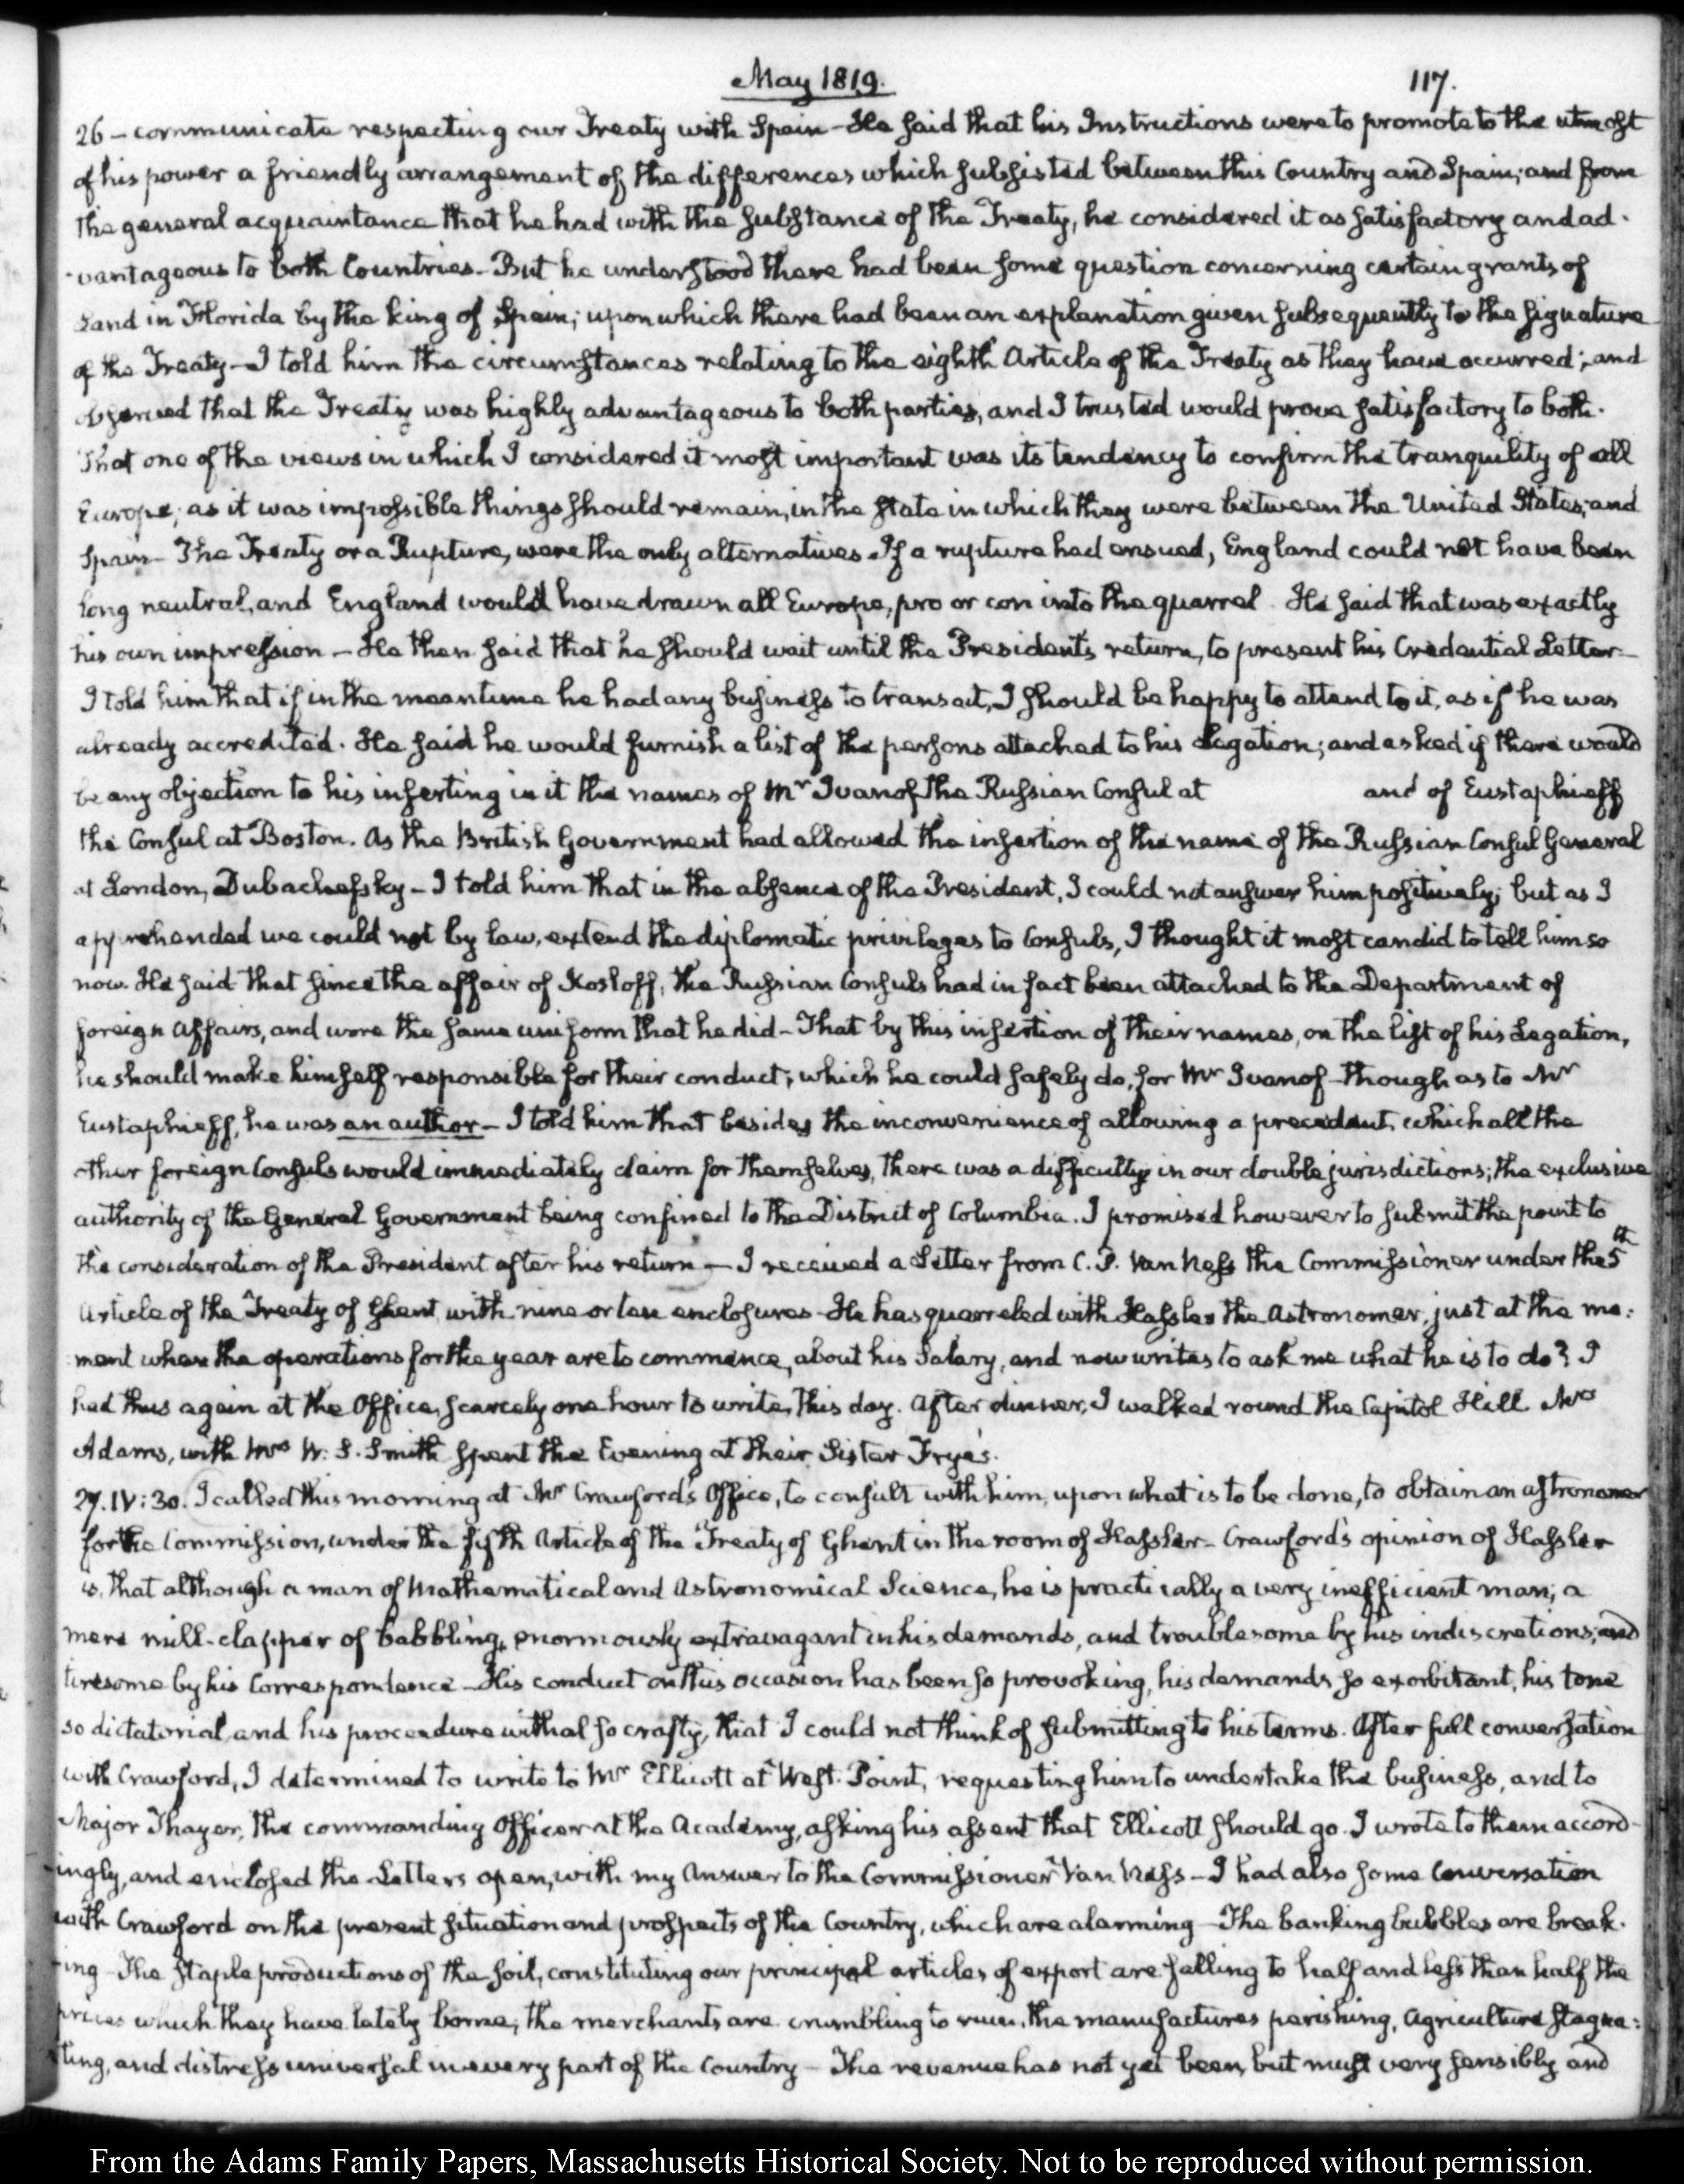 May 1819.
117.
26 – communicate respecting our Treaty with Spain – He said that his Instructions were to promote to the utmost
of his power a friendly arrangement of the differences which subsisted between this Country and Spain; and from
the general acquaintance that he had with the substance of the Treaty, he considered it as satisfactory and ad-
-vantageous to both Countries – But he understood there had been some question concerning certain grants of
Land in Florida by the king of Spain; upon which there had been an explanation given subsequently to the signature
of the Treaty – I told him the circumstances relating to the eighth Article of the Treaty as they have occurred; and
observed that the Treaty was highly advantageous to both parties, and I trusted would prove satisfactory to both.
That one of the views in which I considered it most important was its tendency to confirm the tranquility of all
Europe; as it was impossible things should remain, in the state in which they were between the United States, and
Spain – The Treaty or a Rupture, were the only alternatives – If a rupture had ensued, England could not have been
long neutral, and England would have drawn all Europe, pro or con into the quarrel. He said that was exactly
his own impression – He then said that he should wait until the President's return, to present his Credential Letter –
I told him that if in the meantime he had any business to transact, I should be happy to attend to it, as if he was
already accredited. He said he would furnish a list of the persons attached to his Legation; and asked if there would
be any objection to his inserting in it the names of Mr Ivanof the Russian Consul at and of Eustaphieff
the Consul at Boston. As the British Government had allowed the insertion of the name of the Russian Consul General
at London, Dubachefsky – I told him that in the absence of the President, I could not answer him positively; but as I
apprehended we could not by law, extend the diplomatic privileges to Consuls, I thought it most candid to tell him so
now. He said that since the affair of Kosloff, the Russian Consuls had in fact been attached to the Department of
foreign Affairs, and wore the same uniform that he did – That by this insertion of their names, on the list of his Legation,
he should make himself responsible for their conduct; which he could safely do, for Mr Ivanof – though as to Mr
Eustaphieff, he was an author – I told him that besides the inconvenience of allowing a precedent, which all the
other foreign Consuls would immediately claim for themselves, there was a difficulty in our double jurisdictions; the exclusive
authority of the General Government being confined to the District of Columbia. I promised however to submit the point to
the consideration of the President after his return – I received a Letter from C. P. Van Ness the Commissioner under the 5th
Article of the Treaty of Ghent, with nine or ten enclosures – He has quarreled with Hassler the Astronomer, just at the mo:
ment when the operations for the year are to commence, about his Salary, and now writes to ask me what he is to do? I
had thus again at the Office, scarcely one hour to write, this day. After dinner, I walked round the Capitol Hill. Mrs
Adams, with Mrs W. S. Smith spent the Evening at their Sister Frye's.
27. IV:30. I called this morning at Mr Crawford's Office, to consult with him, upon what is to be done, to obtain an astronomer
for the Commission, under the fifth Article of the Treaty of Ghent in the room of Hassler – Crawford's opinion of Hassler
is, that although a man of Mathematical and Astronomical Science, he is practically a very inefficient man; a
mere mill-clapper of babbling, enormously extravagant in his demands, and troublesome by his indiscretions; and
tiresome by his Correspondence – His conduct on this occasion has been so provoking, his demands so exorbitant, his tone
so dictatorial, and his procedure withal so crafty, that I could not think of submitting to his terms. After full conversation
with Crawford, I determined to write to Mr Ellicott at West-Point, requesting him to undertake the business, and to
Major Thayer, the commanding Officer at the Academy, asking his assent that Ellicott should go. I wrote to them accord-
ingly, and enclosed the Letters open, with my Answer to the Commissioner Van Ness – I had also some Conversation
with Crawford on the present situation and prospects of the Country, which are alarming – The banking bubbles are break-
-ing – The staple productions of the soil, constituting our principal articles of export are falling to half and less than half the
prices which they have lately borne; the merchants are crumbling to ruin, the manufactures perishing, Agriculture stagna:
ting, and distress universal in every part of the Country – The revenue has not yet been, but must very sensibly and
From the Adams Family Papers, Massachusetts Historical Society. Not to be reproduced without permission.